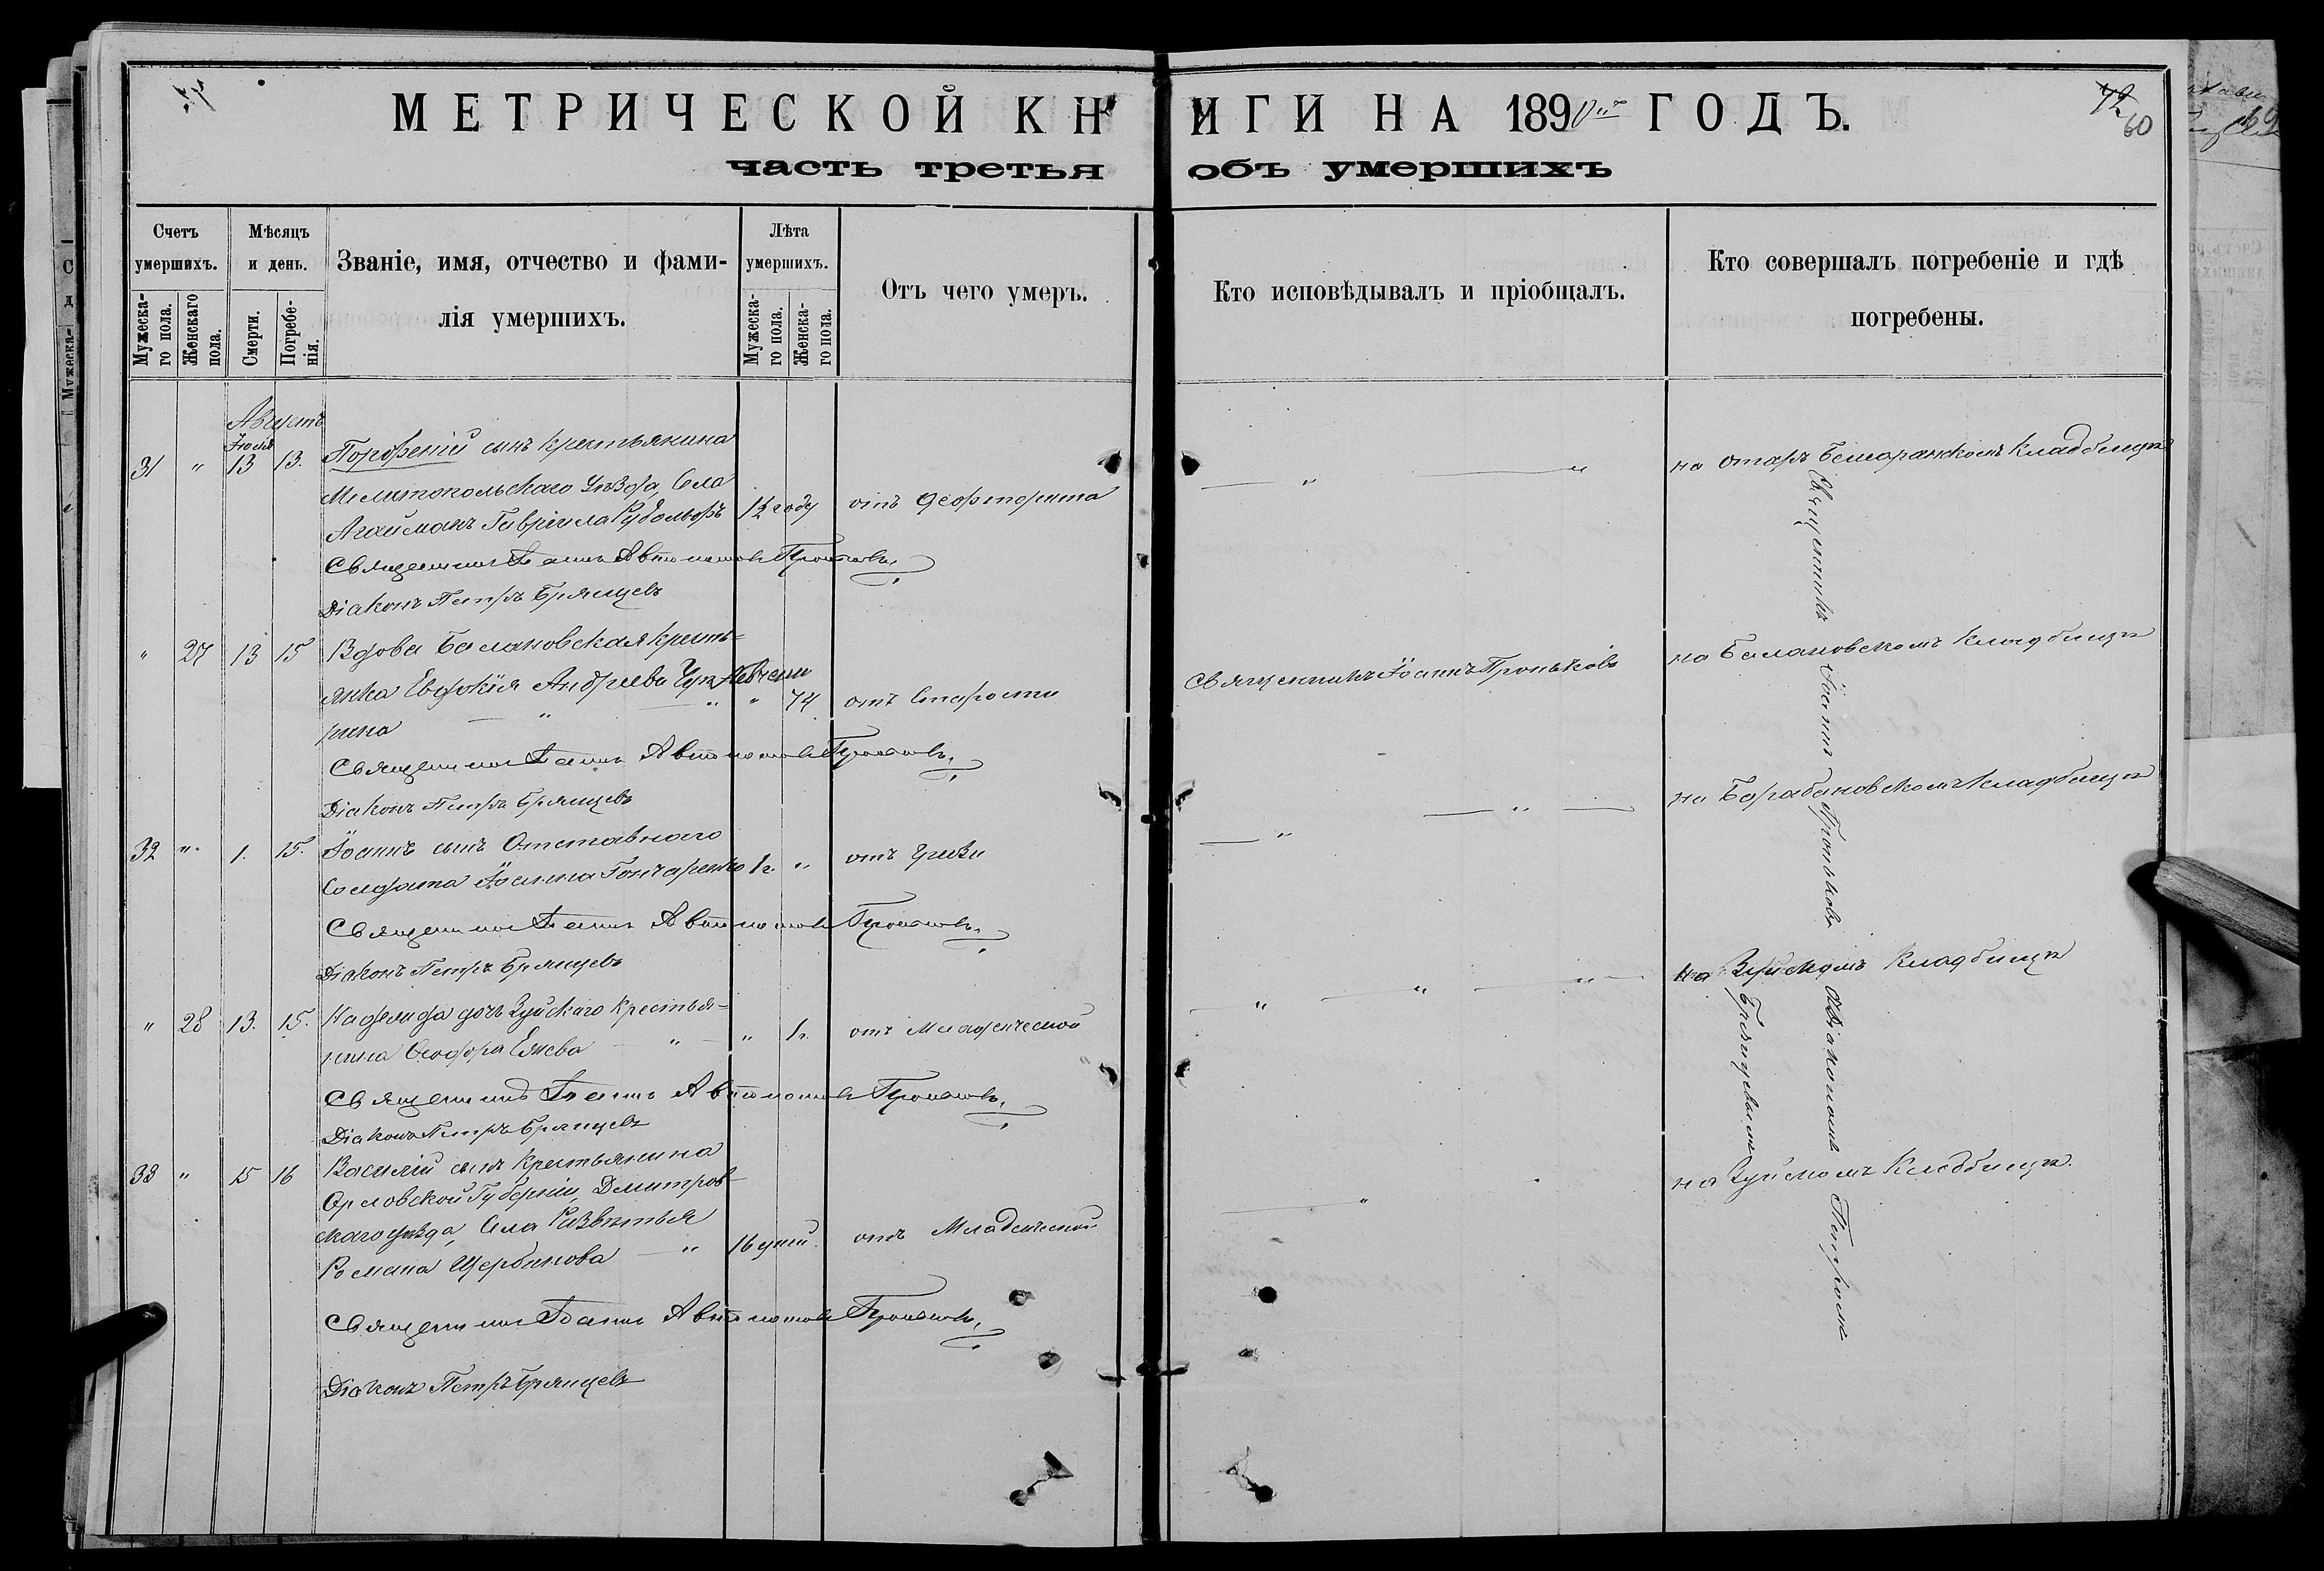 МЕТРИЧЕСКОЙ КНИГИ НА 1890й ГОДЪ.
60
часть третья объ умершихъ
Счетъ умершихъ.
Мужеска-го пола.
Женскаго пола.
Мѣсяцъ и день.
Смерти.
Погребе-нія.
Званіе, имя, отчество и фами-
лія умершихъ.
Лѣта умершихъ.
Мужеска-го пола.
Женска-го пола.
Отъ чего умеръ.
Кто исповѣдывалъ и пріобщалъ.
Кто совершалъ погребеніе и гдѣ
погребены.
Августъ
Іюля
31 " 13 13. сынъ крестьянина
Мелитопольскаго Уѣзда, Села
Агайманъ Гавріила 1½ году отъ Дефтерита
на кладбищѣ
Священникъ Іоаннъ Автономовъ Проньковъ
Діаконъ Петръ Брянцевъ
" 27 13 15 Вдова Балановская кресть-
янка Евдокія Андреева
рина " " " 74 отъ Старости
Священникъ Іоаннъ Проньковъ
на Балановскомъ кладбищѣ
Священникъ Іоаннъ Автономовъ Проньковъ
Діаконъ Петръ Брянцевъ
32 " 1. 15. Іоаннъ сынъ Отставного
Солдата Іоанна Гончаренко 1г. " отъ
на Барабановскомъ кладбищѣ
Священникъ Іоаннъ Автономовъ Проньковъ
Діаконъ Петръ Брянцевъ
" 28 13. 15. Надежда дочь Зуйскаго крестья-
нина Ѳеодора " " 1г. отъ Младенческой
на Зуйскомъ Кладбищѣ
Священникъ Іоаннъ Автономовъ Проньковъ
Діаконъ Петръ Брянцевъ
33 " 15 16 Василій сынъ крестьянина
Орловской Губерніи, Дмитров-
скаго уѣзда, Села
Романа Щербинова " 16 дней. отъ Младенческой
на Зуйскомъ Кладбищѣ.
Священникъ Іоаннъ Автономовъ Проньковъ
Діаконъ Петръ Брянцевъ
Священникъ Іоаннъ Проньковъ съ Діакономъ Петромъ
Брянцевымъ